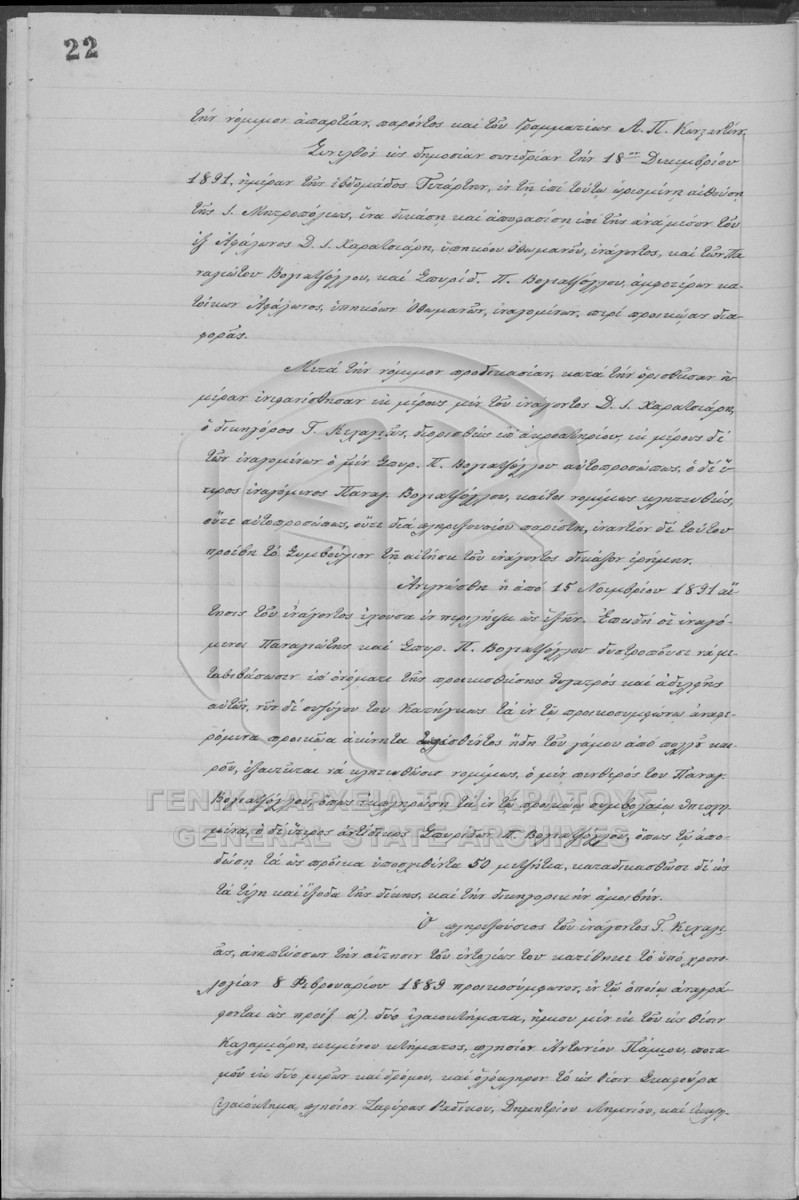 22
τὴν νόμιμον ἀπαρτίαν, παρόντος καὶ τοῦ Γραμματέως Α. Π.
Συνελθὸν εἰς δημοσίαν συνεδρίαν τὴν 18ην Δεκεμβρίου
1891, ἡμέραν τῆς ἑβδομάδος Τετάρτην, ἐν τῇ ἐπὶ τούτῳ ὡρισμένῃ αἰθούσῃ
τῆς Ι. Μητροπόλεως, ἵνα δικάσῃ καὶ ἀποφασίσῃ ἐπὶ τῆς ἀναμέσον τοῦ
ἐξ Ἀφάλωνος Δ. Ι. Χαρατσιάρη, ὑπηκόου ὀθωμανοῦ, ἐνάγοντος, καὶ τῶν Πα
ναγιώτου Βογιατζόγλου, καὶ Σπυρίδ. Π. Βογιατζόγλου, ἀμφοτέρων κα-
τοίκων Ἀφάλωνος, ὑπηκόων ὀθωμανῶν, ἐναγομένων, περὶ προικῴας δια-
φορᾶς.
Μετὰ τὴν νόμιμον προδικασίαν, κατὰ τὴν ὁρισθεῖσαν ἡ-
μέραν ἐνεφανίσθησαν ἐκ μέρους μὲν τοῦ ἐνάγοντος Δ. Ι. Χαρατσιάρη,
ὁ δικηγόρος Γ. Κεχαγιᾶς, διορισθεὶς ἐπ' ἀκροατηρίου, ἐκ μέρους δὲ
τῶν ἐναγομένων ὁ μὲν Σπυρ. Π. Βογιατζόγλου αὐτοπροσώπως, ὁ δὲ ἕ-
τερος ἐναγόμενος Παναγ. Βογιατζόγλου, καίτοι νομίμως κλητευθείς,
οὔτε αὐτοπροσώπως, οὔτε διὰ πληρεξουσίου παρέστη, ἐναντίον δὲ τούτου
προέβη τὸ Συμβούλιον τῇ αἰτήσει τοῦ ἐνάγοντος δικάζον ἐρήμην.
Ἀνεγνώσθη ἡ ἀπὸ 15 Νοεμβρίου 1891 αἴ-
τησις τοῦ ἐνάγοντος ἔχουσα ἐν περιλήψει ὡς ἑξῆς. Ἐπειδὴ οἱ ἐναγό-
μενοι Παναγιώτης καὶ Σπυρ. Π. Βογιατζόγλου δυστροποῦσι νὰ με-
ταβιβάσωσιν ἐπ' ὀνόματι τῆς προικισθείσης θυγατρὸς καὶ ἀδελφῆς
αὐτῶν, νῦν δὲ συζύγου του Κατήγκως τὰ ἐν τῷ προικοσυμφώνῳ ἀναφε-
ρόμενα προικῷα ἀκίνητα τελεσθέντος ἤδη τοῦ γάμου ἀπὸ πολλοῦ και-
ροῦ, ἐξαιτεῖται νὰ κλητευθῶσι νομίμως, ὁ μὲν πενθερός του Παναγ.
Βογιατζόγλου, ὅπως ἐκπληρώσῃ τὰ ἐν τῷ προικῴῳ συμβολαίῳ ὑπεσχη-
μένα, ὁ δὲ ἕτερος ἀντίδικος Σπυρίδων Π. Βογιατζόγλου, ὅπως τῷ ἀπο-
δώσῃ τὰ ὡς προῖκα ὑποσχεθέντα 50 μετζήτια, καταδικασθῶσι δὲ εἰς
τὰ τέλη καὶ ἔξοδα τῆς δίκης, καὶ τὴν δικηγορικὴν ἀμοιβήν.
Ὁ πληρεξούσιος τοῦ ἐνάγοντος Γ. Κεχαγι-
ᾶς, ἀναπτύσσων τὴν αἴτησιν τοῦ ἐντολέως του κατέθηκε τὸ ὑπὸ χρονο-
λογίαν 8 Φεβρουαρίου 1889 προικοσύμφωνον, ἐν τῷ ὁποίῳ ἀναγρά-
φονται ὡς προὶξ α΄). δύο ἐλαιοκτήματα, ἥμισυ μὲν ἐκ τοῦ εἰς θέσιν
Καλαμιάρη, κειμένου κτήματος, πλησίον Ἀντωνίου Πάμκου, ποτα-
μοῦ ἐκ δύο μερῶν καὶ δρόμου, καὶ ὁλόκληρον τὸ εἰς θέσιν Σκαφούρα
ἐλαιόκτημα, πλησίον Σαφύρας Ῥαδίκου, Δημητρίου Λημνίου, καὶ
ΓΕΝΙΚΑ ΑΡΧΕΙΑ ΤΟΥ ΚΡΑΤΟΥΣ
GENERAL STATE ARCHIVES